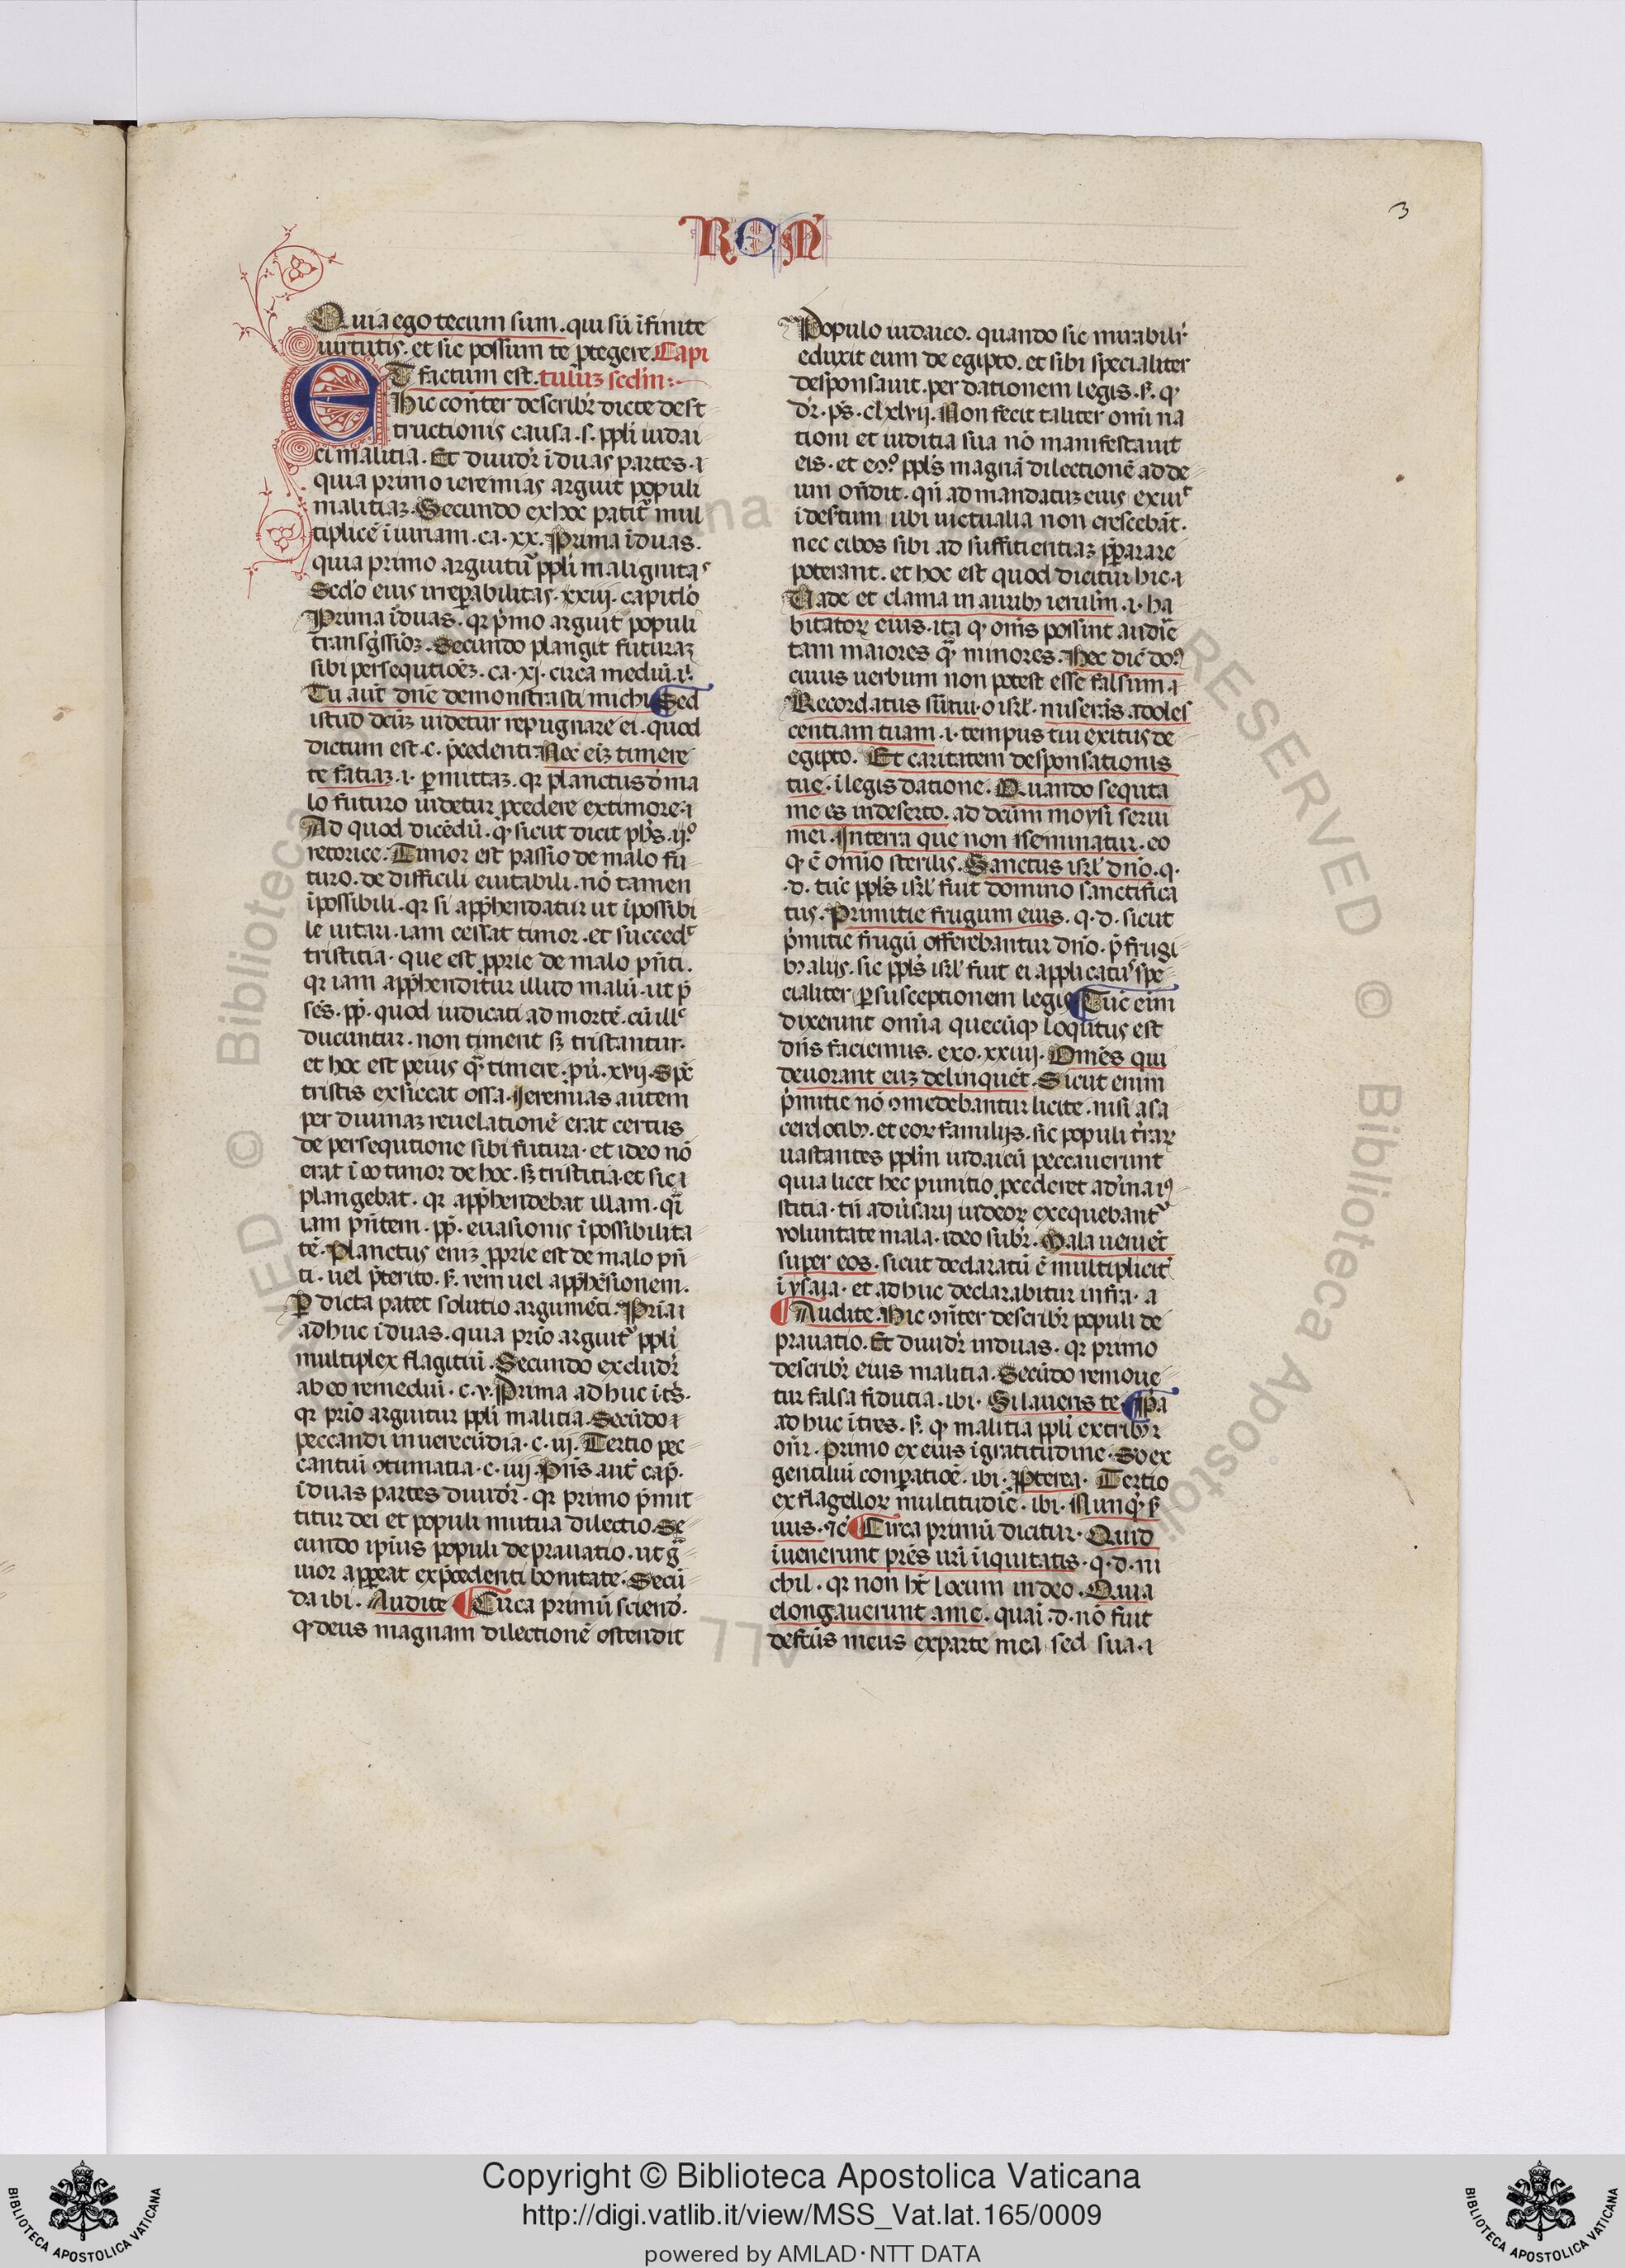 3
ROM̾
Quia ego tecum sum. qui sũ ĩfinite
uirtutis. et sic possum te p̱tegere. Capi
ET factum est. tulũz scd̃m:
Hic cõnter describr̃ dicte dest
tructionis causa. s. pp̃li iudai
ci malitia. Et diuidr̃ ĩ duas partes. ⁊
quia primo ieremias arguit populi
malitiaz. Secundo ex hoc patit̃ mul
tiplicẽ iniuriam. ca. xx. Prima ĩ duas.
quia primo arguitũ pp̃li malignitas
Scd̃o eius irrep̱abilitas. xxiij. capitl̃o
Prima ĩ duas. qr p̾mo arguit populi
transg̾ssiõz. Secundo plangit futuraz
sibi persequtiõez. ca. xj. circa mediũ. ĩ.
Tu aũt dñe demonstrasti michi. Sed
istud deuz uidetur repugnare ei. quod
dictum est. c. p̃cedenti. Nec eiz timere
te fatiaz. i. p̱mittaz. qr planctus d̾ ma
lo futuro uidetur p̱cedere ex timore. ⁊
Ad quod dicẽdũ. q̱ sicut dicit ph̃s. ij.º
retorice. Timor est passio de malo fu
turo. de difficili euitabili. nõ tamen
ĩpossibili. qr si app̃hendatur ut ĩpossibi
le uitari. iam cessat timor. et succed̾
tristitia. que est p̱prie de malo pñti.
qr iam app̃henditur illud malũ. ut p̃
sẽs. pp̃. quod iudicati ad mortẽ. cũ ill̾
ducuntur. non timent sz tristantur.
et hoc est peius q̃ timere. pũ. xvij. Sp̃c
tristis exsiccat ossa. Ieremias autem
per diuinaz reuelationẽ erat certus
de persequtione sibi futura. et ideo nõ
erat ĩ eo timor de hoc. sz tristitia. et sic ⁊
plangebat. qr app̃hendebat illam. q̃i
iam pñtem. pp̃. euasionis ĩpossibilita
tẽ. Planctus eniz p̱prie est de malo pñ
ti. uel p̃terito. s̾. rem uel app̃hẽsionem.
P̱ dicta patet solutio argumẽti. Prĩa ⁊
adhuc ĩ duas. quia prĩo arguit̾ pp̃li
multiplex flagitiũ. Secundo excludr̃
ab eo remediũ. c. v. Prima adhuc ĩ tẽs.
qr prĩo arguitur pp̃li malitia. Secũdo ⁊
peccandi inuerecũdia. c. iij. Tertio pec
cantiũ ↄtumatia. c. iiij. Pñs aũt cap̃.
ĩ duas partes diuidr̃. qr primo p̾mit
titur dei et populi mutua dilectio. Se
cundo ipĩus populi deprauatio. ut g̃
uior app̱eat ex p̃cedenti bonitate. Secũ
da ibi. Audite ¶ Circa primũ sciend̾.
q̱ deus magnam dilectionẽ ostendit
Populo iudaico. quando sic mirabilĩ
eduxit eum de egipto. et sibi specialiter
desponsauit. per dationem legis. s̾. q̱
dr̃. pš. clxlvij. Non fecit taliter omĩ na
tioni et iuditia sua nõ manifestauit
eis. et eↄ.º pp̃ls magnã dilectionẽ ad de
um oñdit. qñ ad mandatuz eius exiuit
ĩ destum ubi uictualia non crescebãt.
nec cibos sibi ad suffitientiaz p̱parare
poterant. et hoc est quod dicitur hic. ⁊
Uade et clama in aurib; ierusl̃m. i. ha
bitatoꝝ eius. ita q̱ om̃s possint audir̃e
tam maiores q̃ minores. Hec dic̃ do⁹
cuius uerbum non potest esse falsum. ⁊
Recordatus sũ tui. o isrl̃. miserãs. adoles
centiam tuam. i. tempus tui exitus de
egipto. Et caritatem desponsationis
tue. ĩ legis datione. Quando sequta
me es in deserto. ad deũm moysi serui
mei. In terra que non seminatur. eo
q̱ ẽ omĩo sterilis. Sanctus isrl̃ dño. q.
.d. tũc pp̃ls isrl̃ fuit domino sanctifica
tus. Primitie frugum eius. q. d. sicut
p̾mitie frugũ offerebantur dño. p̃ frugi
b; alijs. sic pp̃ls isrl̃ fuit ei applicatus spe
cialiter p̱ susceptionem legis. Tũc eim
dixerunt omĩa quecũq; loqutus est
dñs faciemus. exo. xxiiij. Omẽs qui
deuorant euz delinquẽt. Sicut enim
p̾mitie nõ ↄmedebantur licite. nisi a sa
cerdotib;. et eoꝝ familijs. sic populi t̾raꝝ
uastantes pp̃lm iudaicũ peccauerunt
quia licet hec punitio p̱cederet a diũa iu⁹
stitia. tñ adũsarij iudeoꝝ exequebant̾
voluntate mala. ideo subr̃. Mala ueniẽt
super eos. sicut declaratũ ẽ multiplicit̾
ĩ ysaia. et adhuc declarabitur infra. a
¶ Audite. Hic ↄñter describr̃ populi de
prauatio. Et diuidr̃ in duas. qr primo
describr̃ eius malitia. Secũdo remoue
tur falsa fidutia. ibi. Si laueris te. ¶ Pa
ad huc ĩ tres. s̾. q̱ malitia pp̃li ex trib; ⁊
oñr. Primo ex eius ĩgratitudine. So ex
gentiliũ conp̱atiõe. ibi. Pp̃terea. Tertio
ex flagelloꝝ multitudĩe. ibi. Nunq̃ s̾
uus. ⁊c̃ ¶ Circa primũ dicitur. Quid
ĩuenerunt prẽs uri ĩiquitatis. q. d. ni
chil. qr non hʒ locum in deo. Quia
elongauerunt a me. quaĩ. d. nõ fuit
defc̃us meus ex parte mea sed sua. ⁊
Copyright © Biblioteca Apostolica Vaticana
http://digi.vatlib.it/view/MSS_Vat.lat.165/0009
powered by AMLAD·NTT DATA
BIBLIOTECA APOSTOLICA VATICANA
BIBLIOTECA APOSTOLICA VATICANA